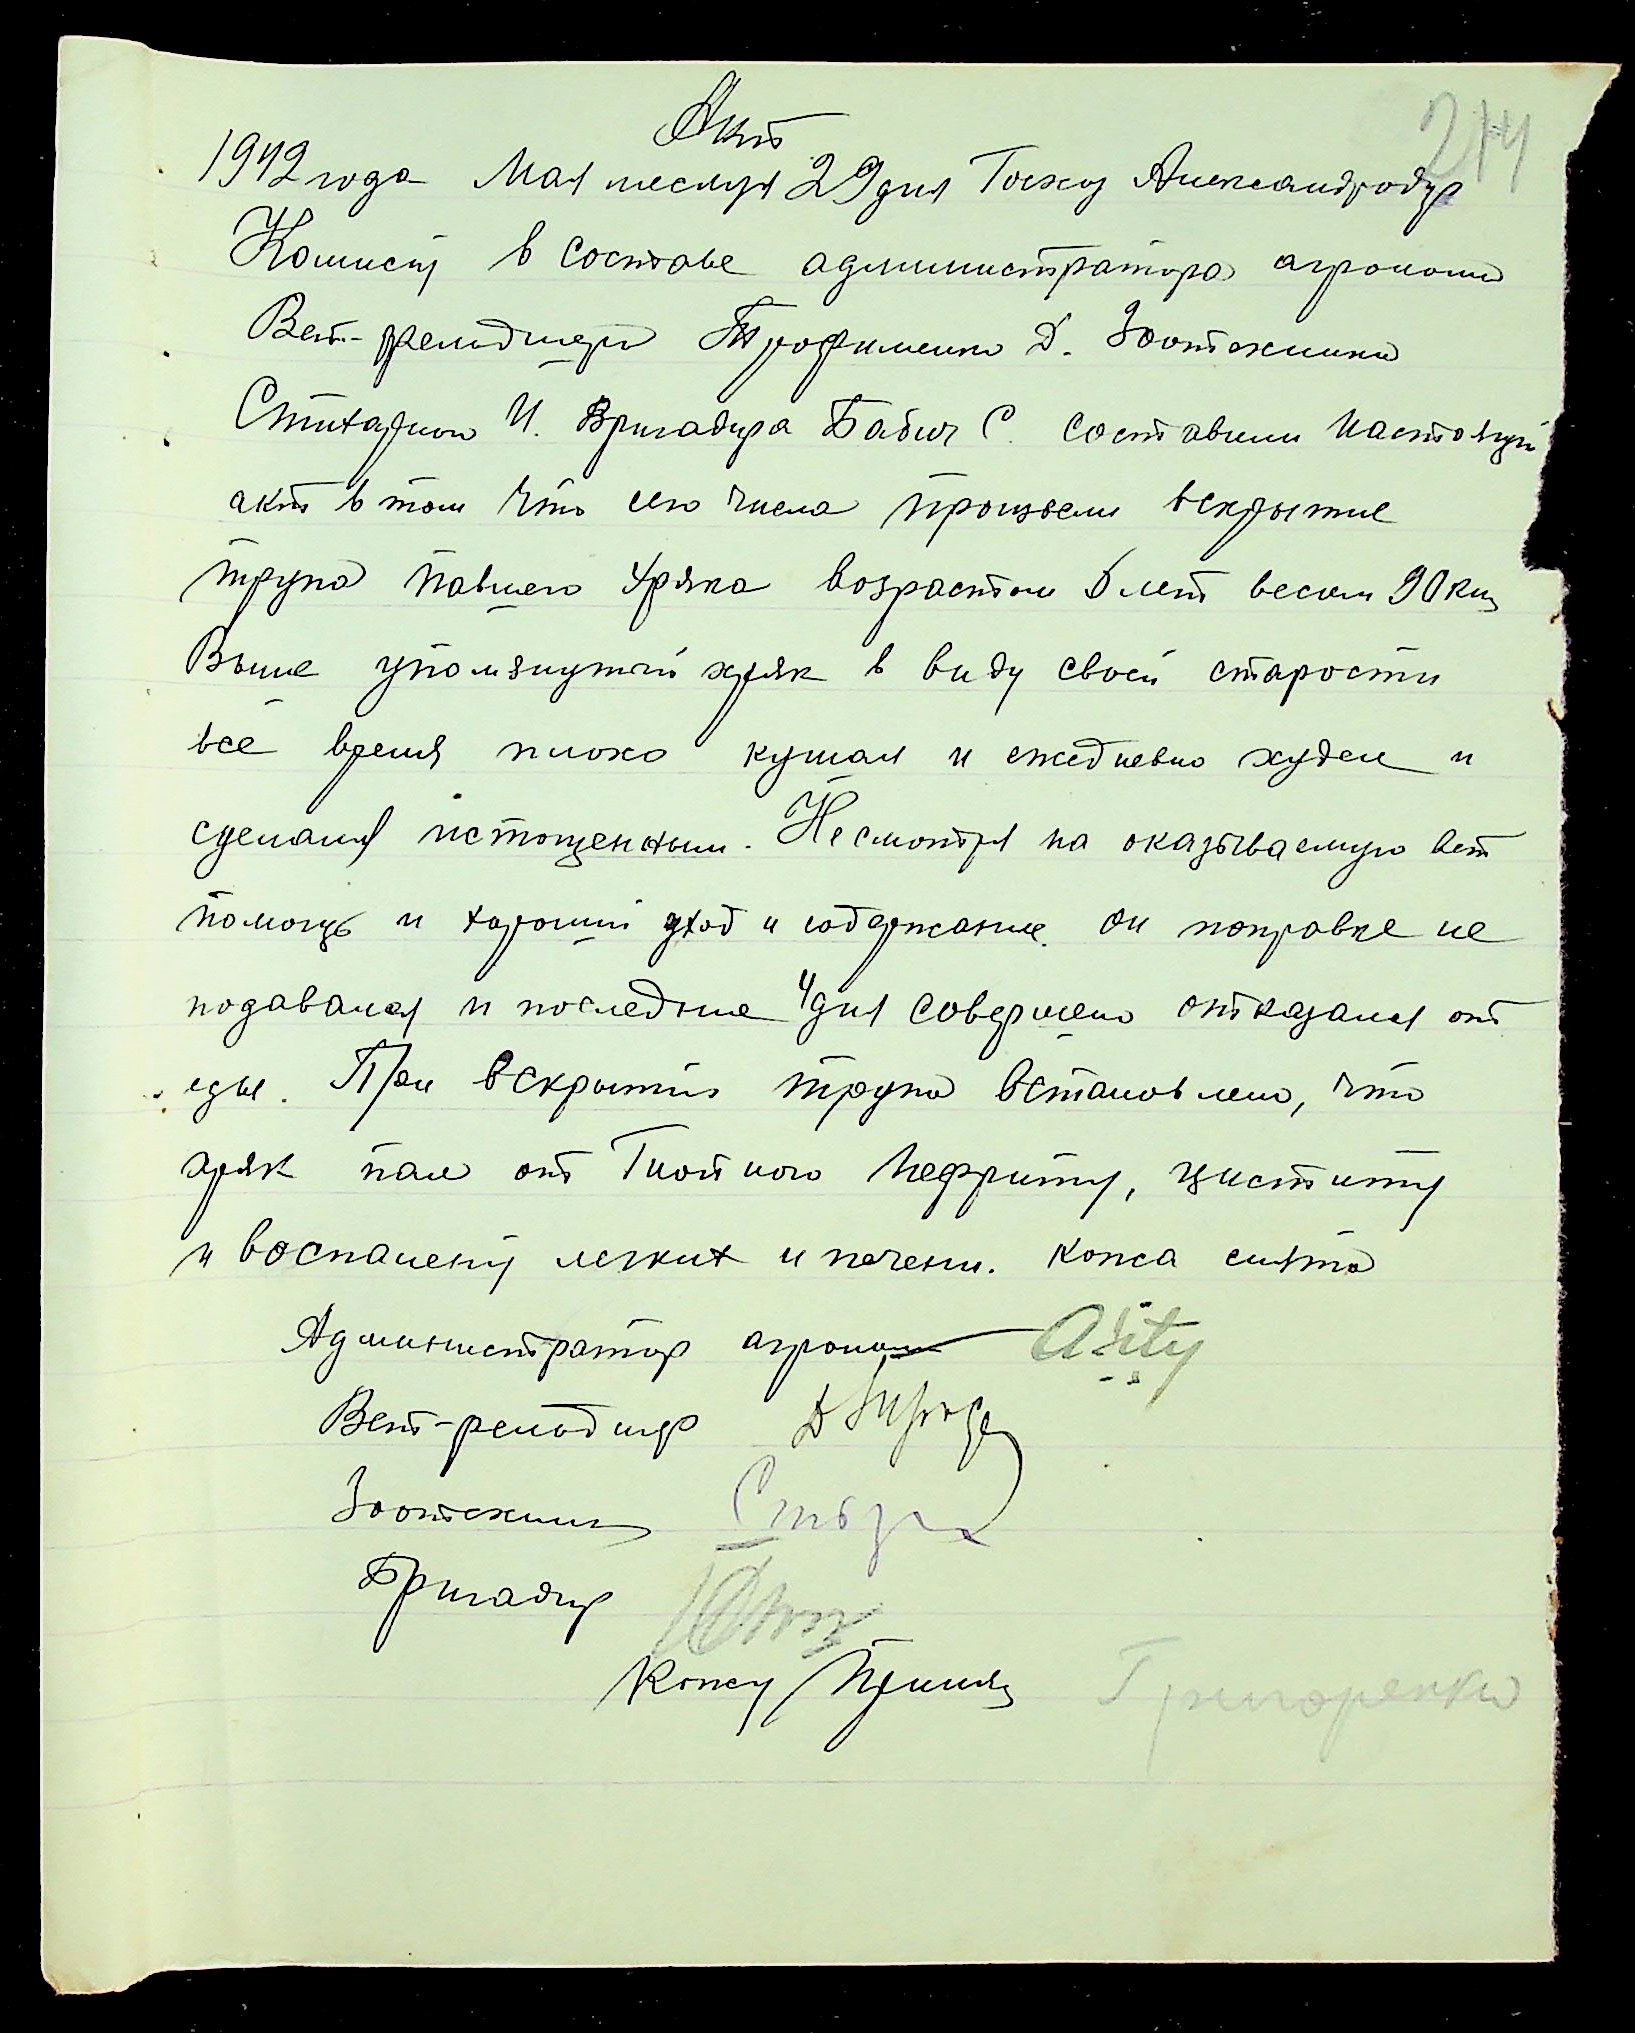 214
Акт
1942 года Мая месяця 29 дня Госхоз Александродар
Комисия в составе администратора агронома
Вет-фельдшера Трофименко Д. Зоотехника
И. Бригадира Бабич С. составили настоящий
акт в том что сего числа произвели вскрытие
трупа павшего хряка возрастом 5 лет весом 90 кил
Выше упомянутый хряк в виду своей старости
всё время плохо кушал и ежедневно худел и
сделался истощенным. Несмотря на оказываемую вет
помощь и хороший уход и содержание. он поправке не
подавался и последние 4 дня совершено отказался от
еды. При вскрытии трупа встановлено, что
хряк пал от Гнойного Нефриту, циститу
и воспалению легких и печени. кожа снята
Администратор агроном
Вет-фельдшер
Зоотехник
Бригадир
Кожу Принял Григоренко